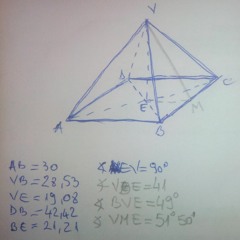 V
D
C
E
M
A
B
AB = 30
VB = 28,53
VE = 19,08
DB = 42,42
BE = 21,21
∢ EV = 90°
∢ VBE = 41
∢ BVE = 49°
∢ VME = 51° 50'